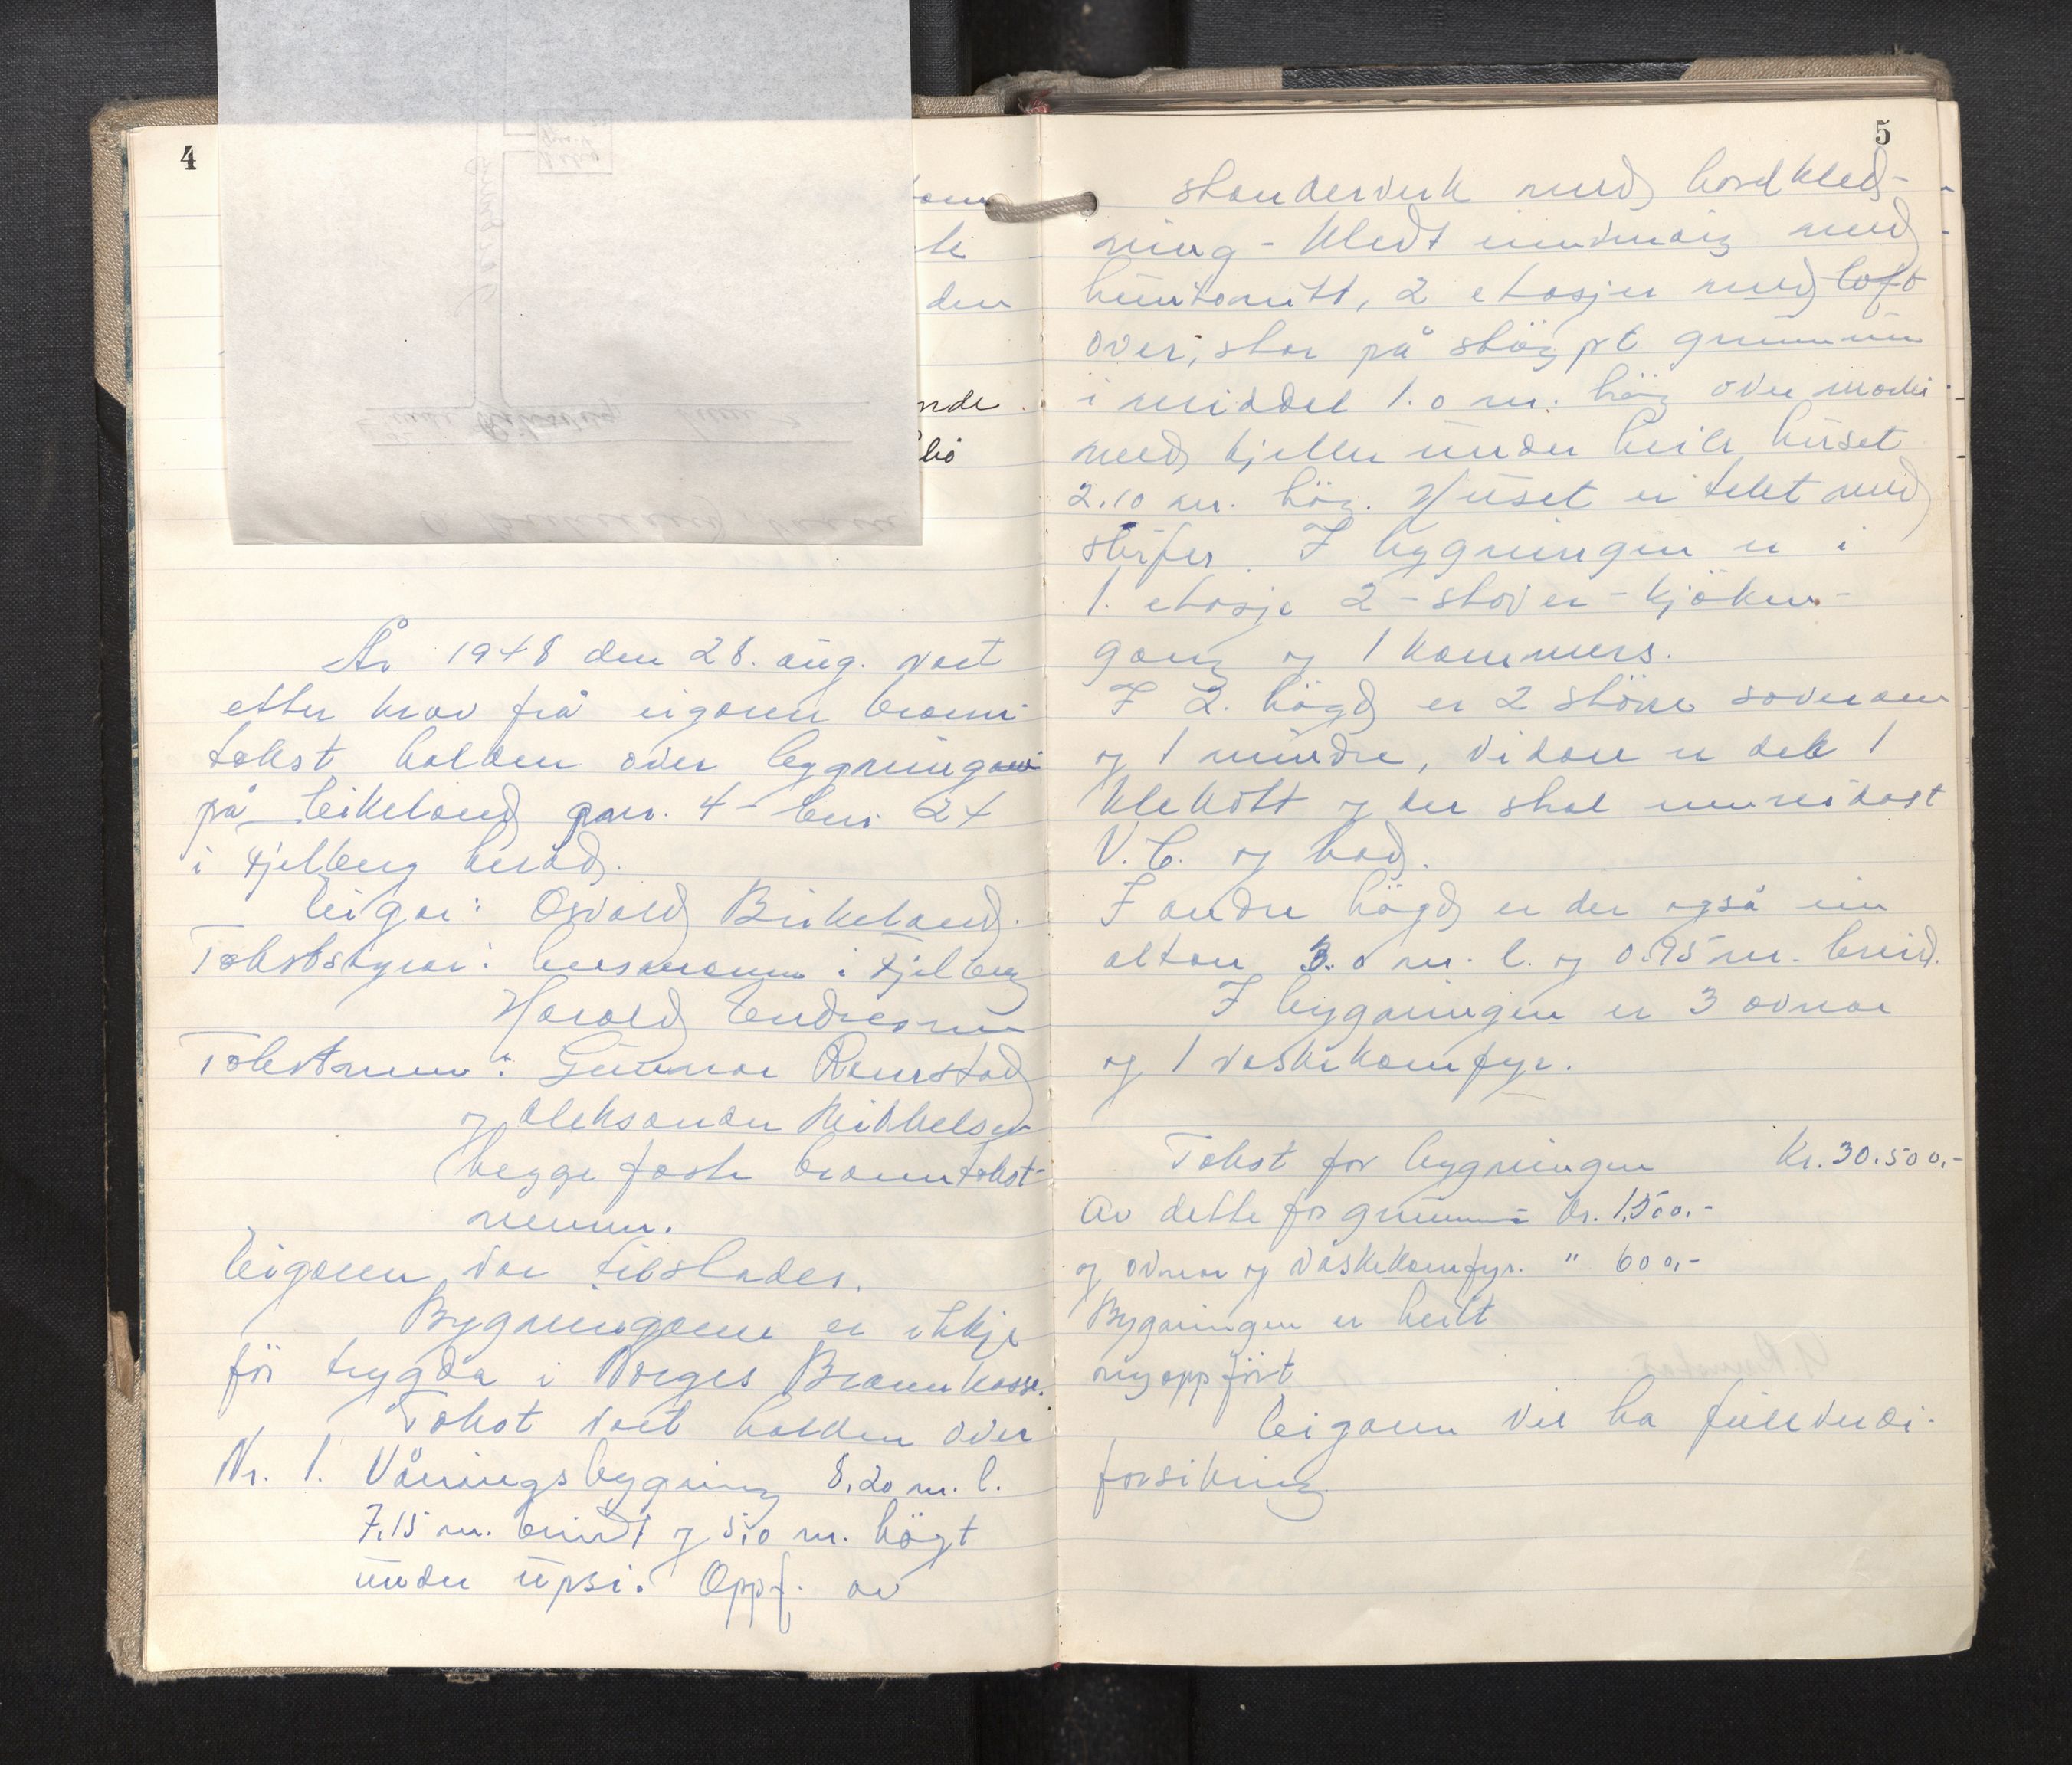 4
nde
År 1948 den 28. aug. vart
etter krav frå eigaren brann-
takst halden over bygningane
på Eikeland gnr. 4 - bnr. 24
i Fjelberg herad.
Eigar: Osvald Birkeland.
Takststyrar: lensmannen i Fjelberg
Harald Endresen
Takstmenn: Gunnar Raunstad
og Aleksander Mikkelsen
begge faste branntakst-
menn.
Eigaren var tilstades.
Bygningane er ikkje
för trygda i Norges Brannkasse.
Takst vart halden over
Nr. 1. Våningsbygning 8,20 m. l.
7,15 m. breidt og 5,0 m. högt
under upsi. Oppf. av
5
standerverk med bordkled-
ning - kledt innvendig med
huntonitt, 2 etasjer med loft
over, står på stöypt grunnmur
i middel 1.0 m. hög over marki
med kjeller under heile huset
2,10 m. hög. Huset er tekt med
skifer. I bygningen er i
1. etasje 2 - stover - kjöken -
gang og 1 kammers.
I 2. högd er 2 större soverom
og 1 mindre, vidare er det 1
klekott og der skal innreidast
V.C. og bad.
I andre högd er der også ein
altan 3.0 m. l. og 0.95 m. breid.
I bygningen er 3 ovnar
og 1 vaskekomfyr.
Takst for bygningen Kr. 30.500,-
Av dette for grunnmur Kr. 1,500.-
og ovnar og vaskekomfyr. " 600,-
Bygningen er heilt
nyoppfört
Eigaren vil ha fullverdi-
forsikring